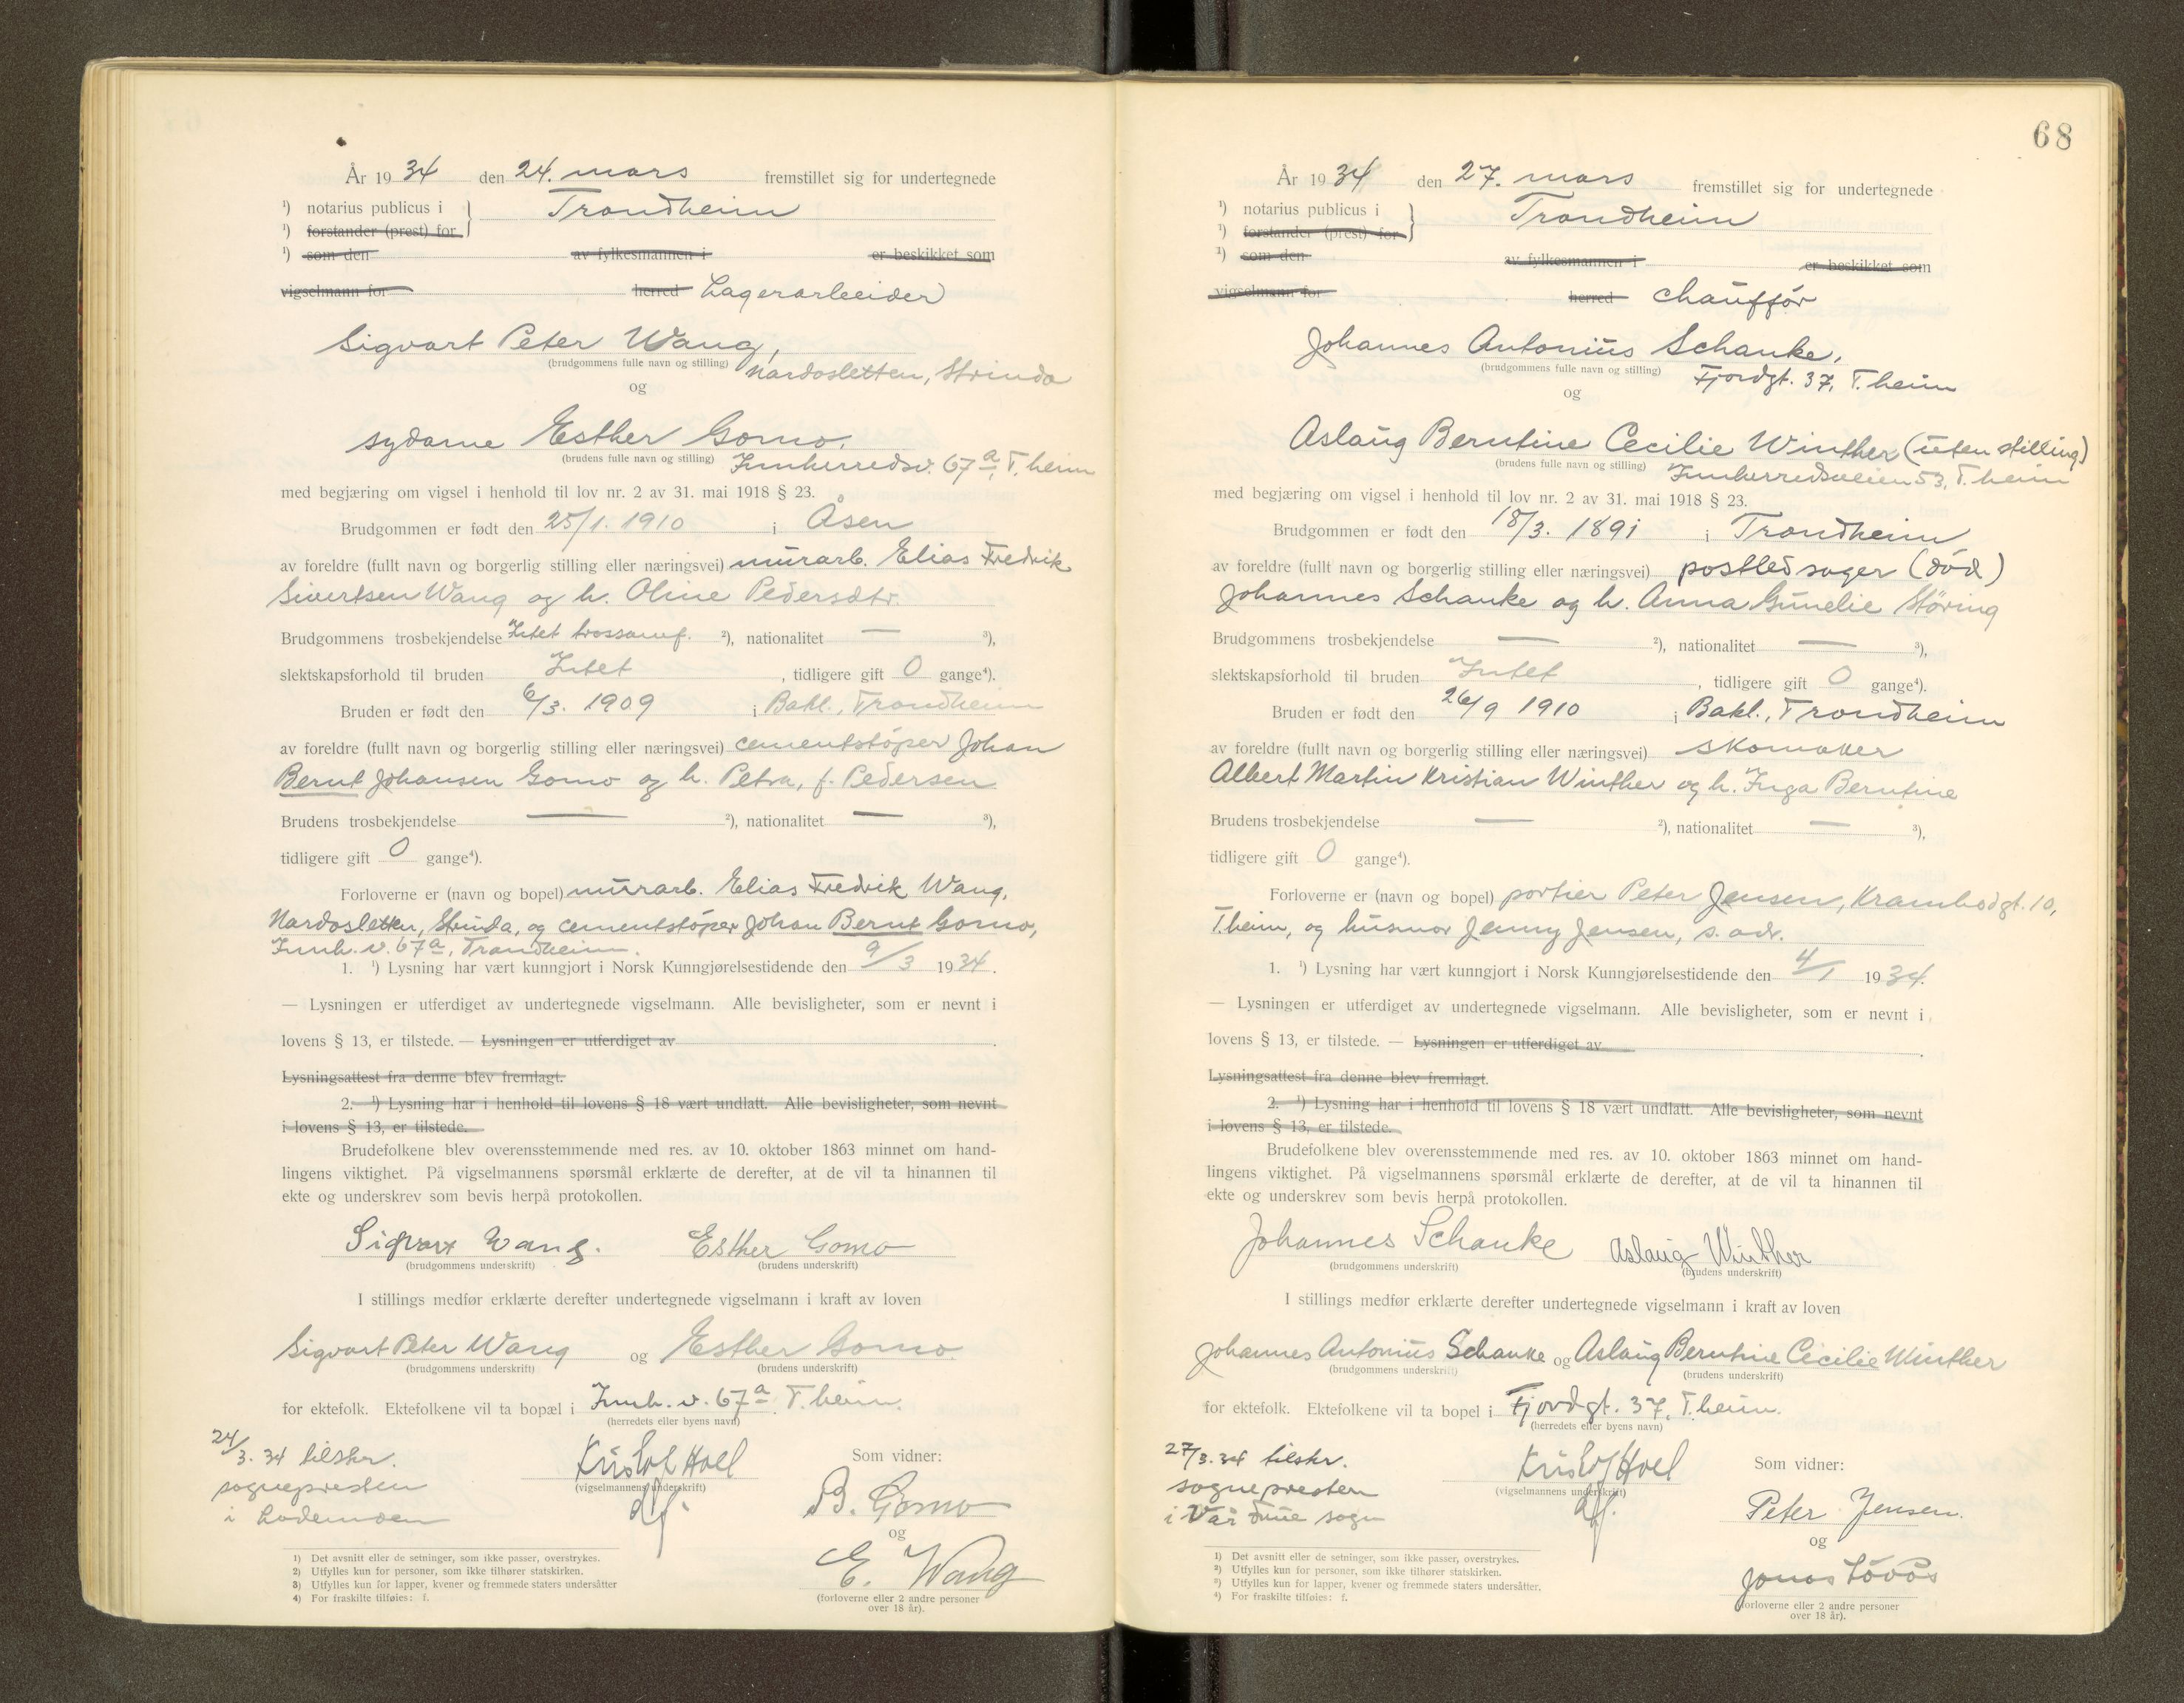 År 1934 den 24. mars fremstillet sig for undertegnede
¹) notarius publicus i } Trondheim
¹) forstander (prest) for
¹) som den av fylkesmannen i er beskikket som
vigselmann for herred Lagerarbeider
Sigvart Peter Wang,
(brudgommens fulle navn og stilling) Nardosletten, Strinda
og
sydame Esther Gomo.
(brudens fulle navn og stilling) Innherredsv. 67a, T.heim
med begjæring om vigsel i henhold til lov nr. 2 av 31. mai 1918 § 23.
Brudgommen er født den 25/1. 1910 i Åsen
av foreldre (fullt navn og borgerlig stilling eller næringsvei) murarb. Elias Fredrik
Sivertsen Wang og h. Oline Pedersdtr.
Brudgommens trosbekjendelse Intet trossamf. ²), nationalitet — ³),
slektskapsforhold til bruden Intet, tidligere gift 0 gange⁴).
Bruden er født den 6/3. 1909 i Bakl., Trondheim
av foreldre (fullt navn og borgerlig stilling eller næringsvei) cementstöper Johan
Bernt Johansen Gomo og h. Petra, f. Pedersen
Brudens trosbekjendelse — ²), nationalitet — ³),
tidligere gift 0 gange⁴).
Forloverne er (navn og bopel) murarb. Elias Fredrik Wang,
Nardosletten, Strinda, og cementstöper Johan Bernt Gomo,
Innh. v. 67a, Trondheim.
1. ¹) Lysning har vært kunngjort i Norsk Kunngjørelsestidende den 9/3 1934.
— Lysningen er utferdiget av undertegnede vigselmann. Alle bevisligheter, som er nevnt i
lovens § 13, er tilstede. — Lysningen er utferdiget av
Lysningsattest fra denne blev fremlagt.
2. ¹) Lysning har i henhold til lovens § 18 vært undlatt. Alle bevisligheter, som nevnt
i lovens § 13, er tilstede.
Brudefolkene blev overensstemmende med res. av 10. oktober 1863 minnet om hand-
lingens viktighet. På vigselmannens spørsmål erklærte de derefter, at de vil ta hinannen til
ekte og underskrev som bevis herpå protokollen.
Sigvart Wang. Esther Gomo
(brudgommens underskrift) (brudens underskrift)
I stillings medfør erklærte derefter undertegnede vigselmann i kraft av loven
Sigvart Peter Wang og Esther Gomo.
(brudgommens underskrift) (brudens underskrift)
for ektefolk. Ektefolkene vil ta bopæl i Innh. v. 67a. T.heim.
(herredets eller byens navn)
24/3. 34 tilskr. Kristof Hoel Som vidner:
sognepresten (vigselmannens underskrift) B. Gomo
i Lademoen
og
E. Wang
(forloverne eller 2 andre personer
over 18 år).
1) Det avsnitt eller de setninger, som ikke passer, overstrykes.
2) Utfylles kun for personer, som ikke tilhører statskirken.
3) Utfylles kun for lapper, kvener og fremmede staters undersåtter
4) For fraskilte tilføies: f.
68
År 1934 den 27. mars fremstillet sig for undertegnede
¹) notarius publicus i } Trondheim
¹) forstander (prest) for
¹) som den av fylkesmannen i er beskikket som
vigselmann for herred chaufför
Johannes Antonius Schanke,
(brudgommens fulle navn og stilling) Fjordgt. 37, T.heim
og
Aslaug Berntine Cecilie Winther (uten stilling)
(brudens fulle navn og stilling) Innherredsveien 53, T.heim
med begjæring om vigsel i henhold til lov nr. 2 av 31. mai 1918 § 23.
Brudgommen er født den 18/3. 1891 i Trondheim
av foreldre (fullt navn og borgerlig stilling eller næringsvei) postledsager (död)
Johannes Schanke og h. Anna Gunelie Störing
Brudgommens trosbekjendelse — ²), nationalitet — ³),
slektskapsforhold til bruden Intet, tidligere gift 0 gange⁴).
Bruden er født den 26/9 1910 i Bakl., Trondheim
av foreldre (fullt navn og borgerlig stilling eller næringsvei) skomaker
Albert Martin Kristian Winther og h. Inga Berntine
Brudens trosbekjendelse — ²), nationalitet — ³),
tidligere gift 0 gange⁴).
Forloverne er (navn og bopel) portier Peter Jensen, Krambodgt. 10,
T.heim, og husmor Jenny Jensen, s. adr.
1. ¹) Lysning har vært kunngjort i Norsk Kunngjørelsestidende den 4/1 1934.
— Lysningen er utferdiget av undertegnede vigselmann. Alle bevisligheter, som er nevnt i
lovens § 13, er tilstede. — Lysningen er utferdiget av
Lysningsattest fra denne blev fremlagt.
2. ¹) Lysning har i henhold til lovens § 18 vært undlatt. Alle bevisligheter, som nevnt
i lovens § 13, er tilstede.
Brudefolkene blev overensstemmende med res. av 10. oktober 1863 minnet om hand-
lingens viktighet. På vigselmannens spørsmål erklærte de derefter, at de vil ta hinannen til
ekte og underskrev som bevis herpå protokollen.
Johannes Schanke Aslaug Winther
(brudgommens underskrift) (brudens underskrift)
I stillings medfør erklærte derefter undertegnede vigselmann i kraft av loven
Johannes Antonius Schanke og Aslaug Berntine Cecilie Winther
(brudgommens underskrift) (brudens underskrift)
for ektefolk. Ektefolkene vil ta bopel i Fjordgt. 37, T.heim.
(herredets eller byens navn)
27/3. 34 tilskr. Kristof Hoel Som vidner:
sognepresten (vigselmannens underskrift) Peter Jensen.
i Vår Frue sogn
og
Jonas
(forloverne eller 2 andre personer
over 18 år).
1) Det avsnitt eller de setninger, som ikke passer, overstrykes.
2) Utfylles kun for personer, som ikke tilhører statskirken.
3) Utfylles kun for lapper, kvener og fremmede staters undersåtter.
4) For fraskilte tilføies: f.